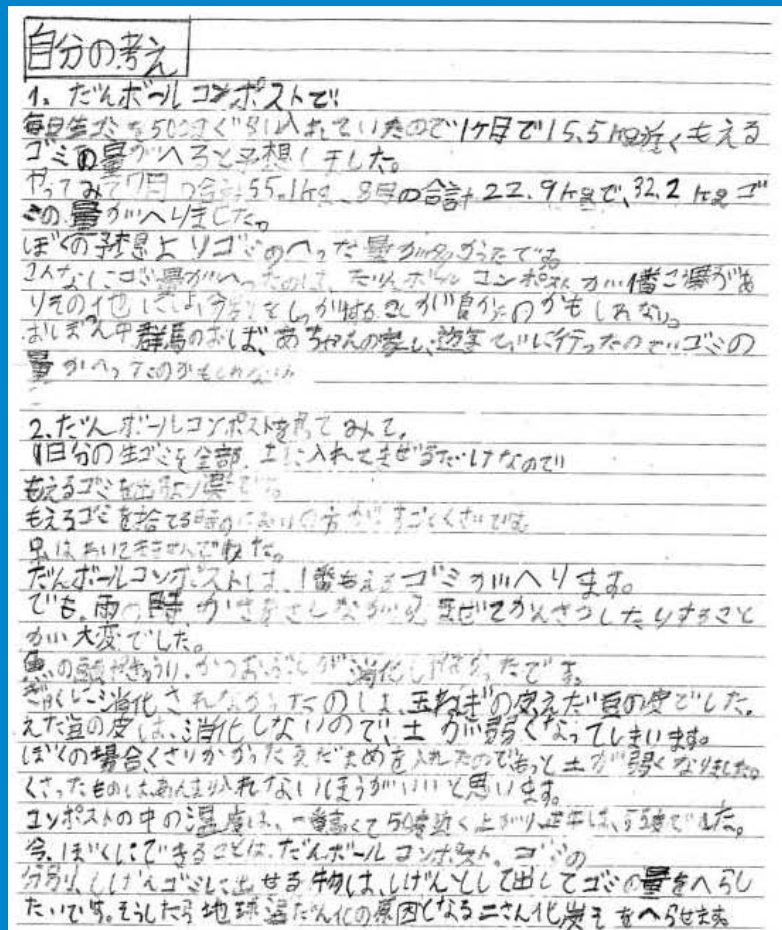 自分の考え
1. だんボールコンポストで!!
毎日生ゴミを500gぐらい入れていたので1ケ月で15.5kg近くもえる
ゴミの量がへると予想しました。
やってみて7月の合計55.1kg、8月の合計22.9kgで、32.2kgゴ
ミの量がへりました。
ぼくの予想よりゴミのへった量が多かったです。
こんなにゴミ量がへったのは、だんボールコンポストが1番こ果があ
りその他には、分別をしっかりすることが良かったのかもしれない。
おぼん中群馬のおばあちゃんの家に遊びに行ったのでゴミの
量がへったのかもしれない
2.だんボールコンポストをやってみて。
1日分の生ゴミを全部、土に入れてまぜるだけなので
もえるゴミを出すより楽です。
もえるゴミを捨てる時のにおいの方がすごくくさいです。
虫はわいてきませんでした。
だんボールコンポストは、1番もえるゴミがへります。
でも、雨の時かさをさしながらまぜてかんさつしたりすること
が大変でした。
魚の頭やきゅうり、かつおぶしが消化しやすかったです。
ぎゃくに消化されなかったのは、玉ねぎの皮えだ豆の皮でした。
えだ豆の皮は、消化しないので、土が弱くなってしまいます。
ぼくの場合、くさりかかったえだまめを入れたのでもっと土が弱くなりました。
くさったものは、あんまり入れないほうがいいと思います。
コンポストの中の温度は、一番高くて50度近く上がり、
今、ぼくにできることは、だんボールコンポスト。ゴミの
分別、しげんゴミに出せる物は、しげんとして出してゴミの量をへらし
たいです。そうしたら地球温だん化の原因となる二さん化炭そをへらせます。